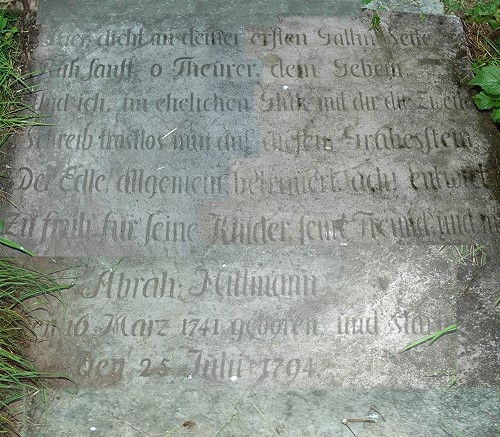 Hier, dicht an deiner ersten Gattin Seite
Ruh sanft, o Theurer, dein Gebein,
Und ich, im ehelichen Glük mit dir die Zweite
Schreib trostlos nun auf diesen Grabesstein
Der Edle, allgemein betrauert, ach! entwich
Zu früh für seine Kinder, seine Freund, und
Abrah: Millmann
den 16 März 1741 geboren, und starb
den 25 Julii 1794.